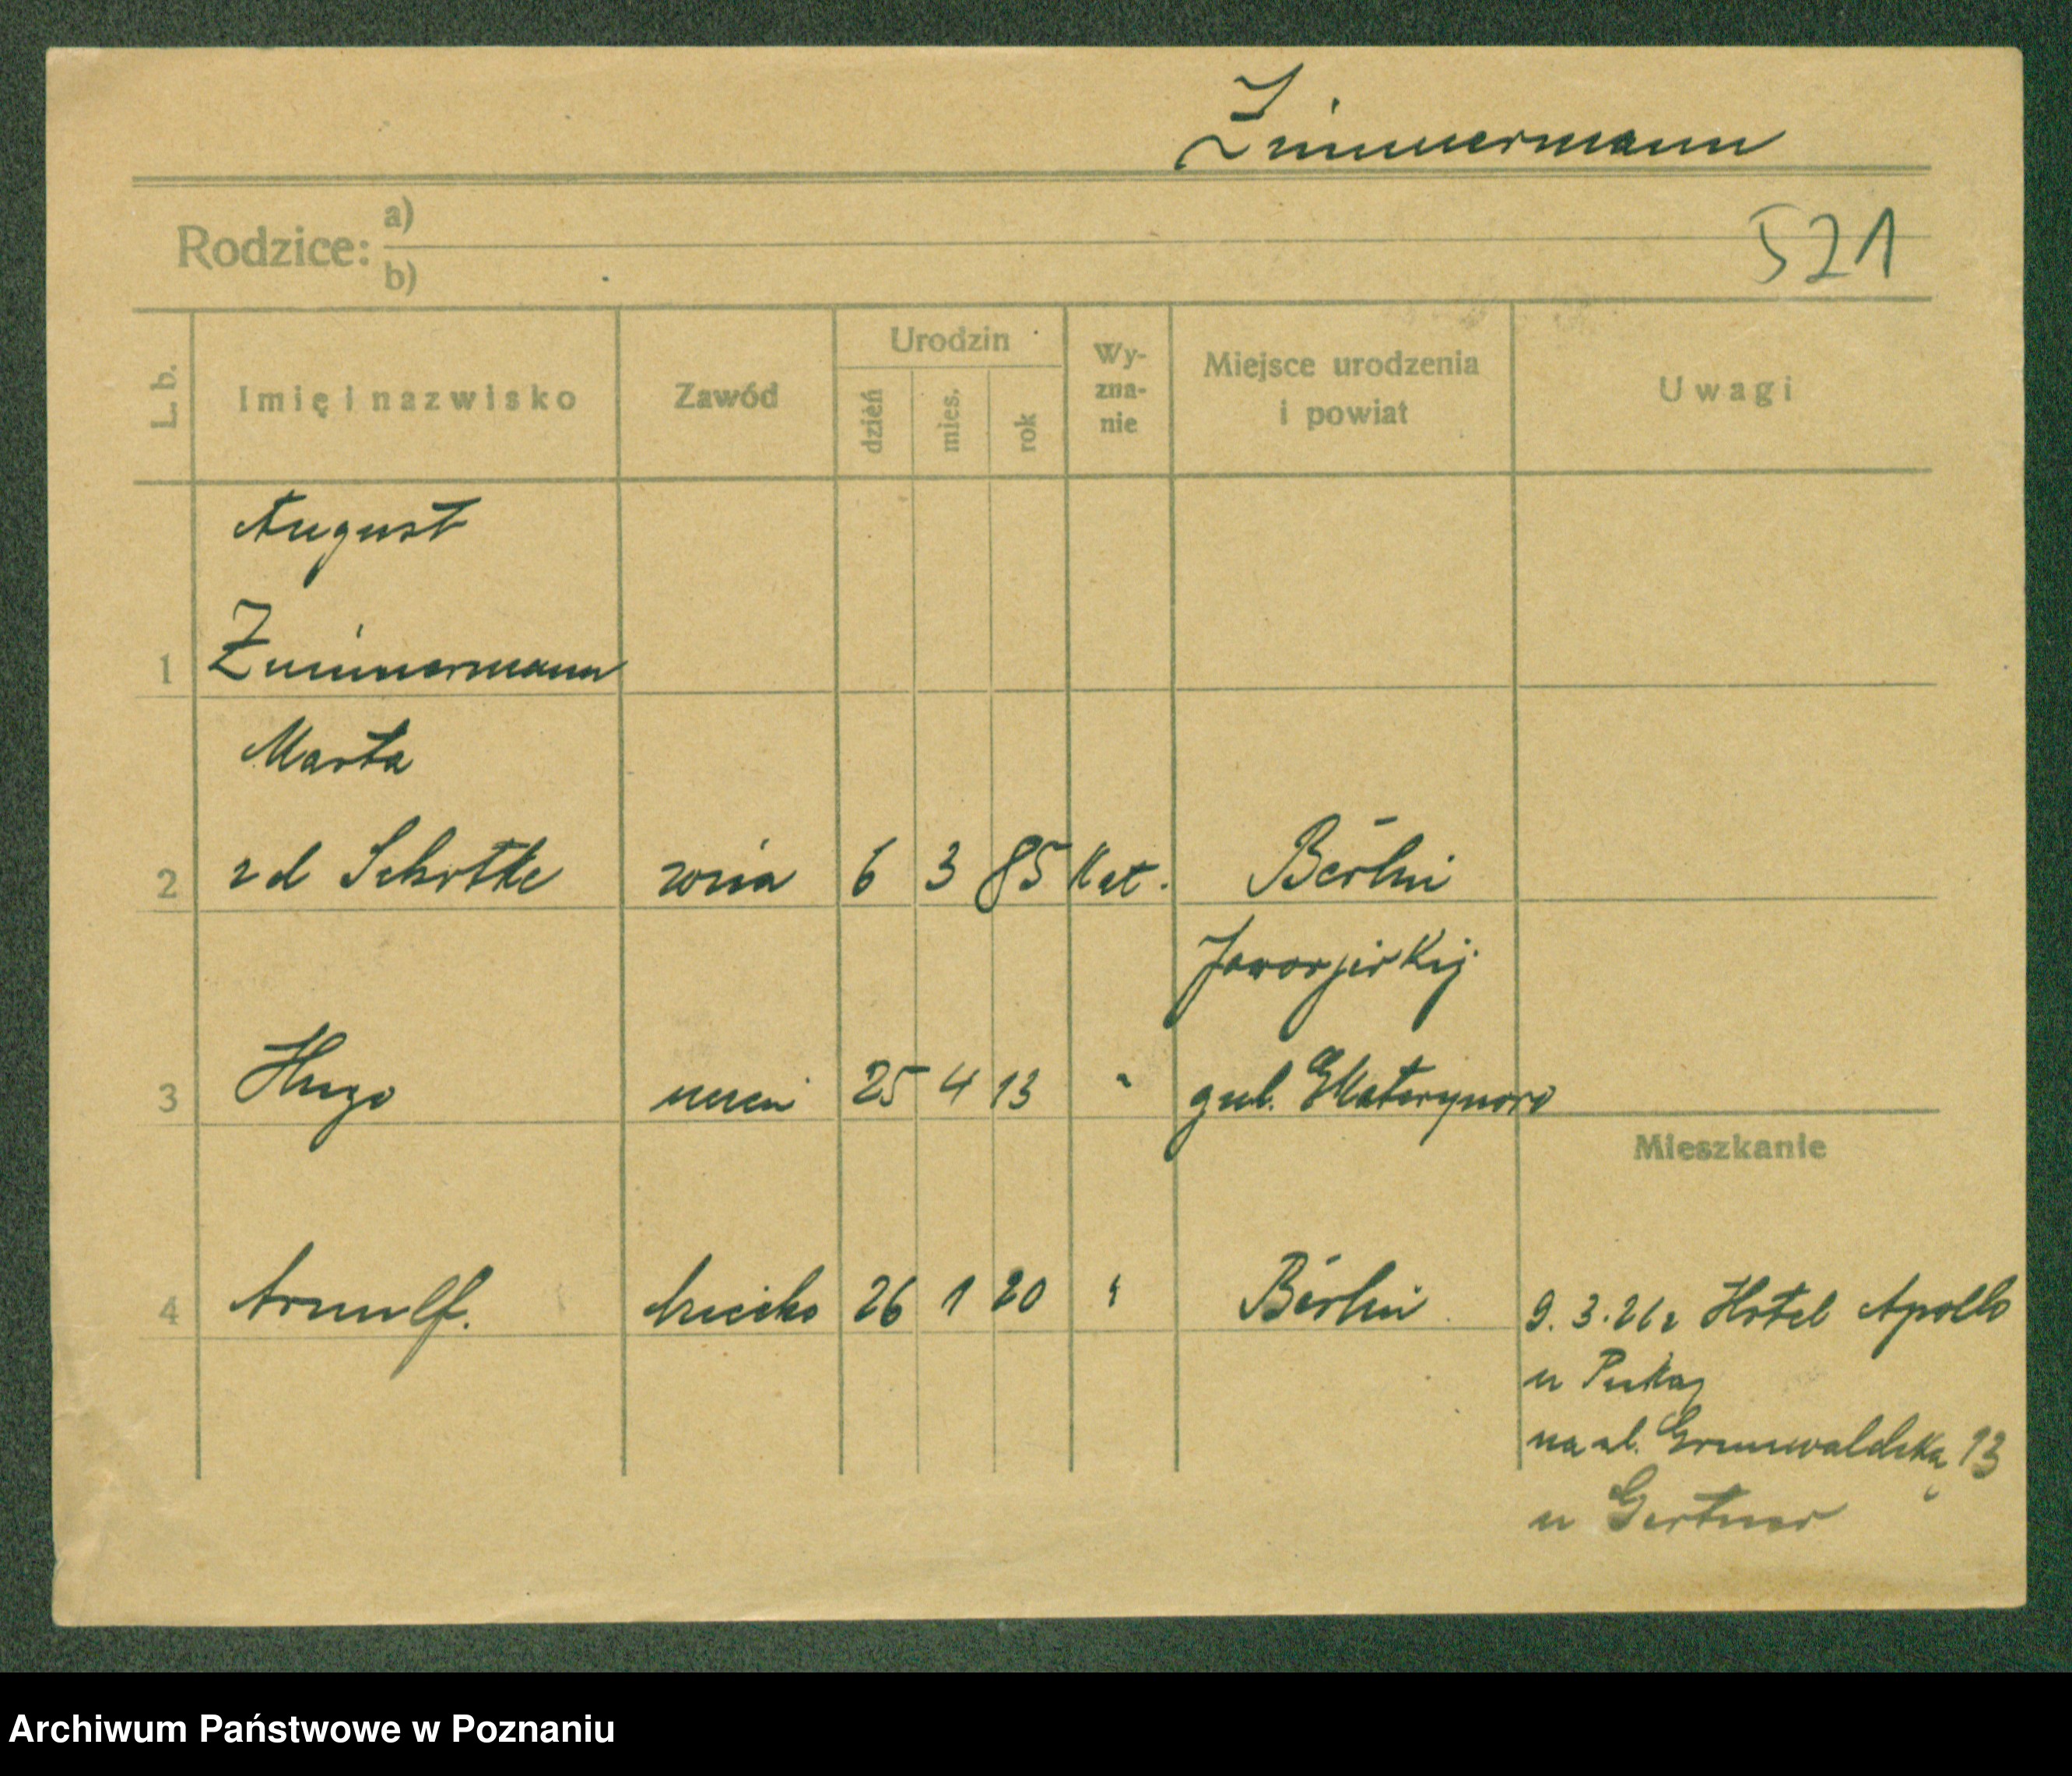 Zimmermann
Rodzice: a)
b)
521
L. b.
Imię i nazwisko
Zawód
Urodzin
dzień
mies.
rok
Wy-
zna-
nie
Miejsce urodzenia
i powiat
Uwagi
August
1 Zimmermann
Marta
2 zd żona 6 3 85 Kat. Berlin
3 Hugo uczeń 25 4 13 " gub.
Mieszkanie
4 Arnulf. dziecko 26 1 20 " Berlin
9. 3. 26 r Hotel Apollo
u
na ul. Grunwaldzką 13
u Gertner
Archiwum Państwowe w Poznaniu